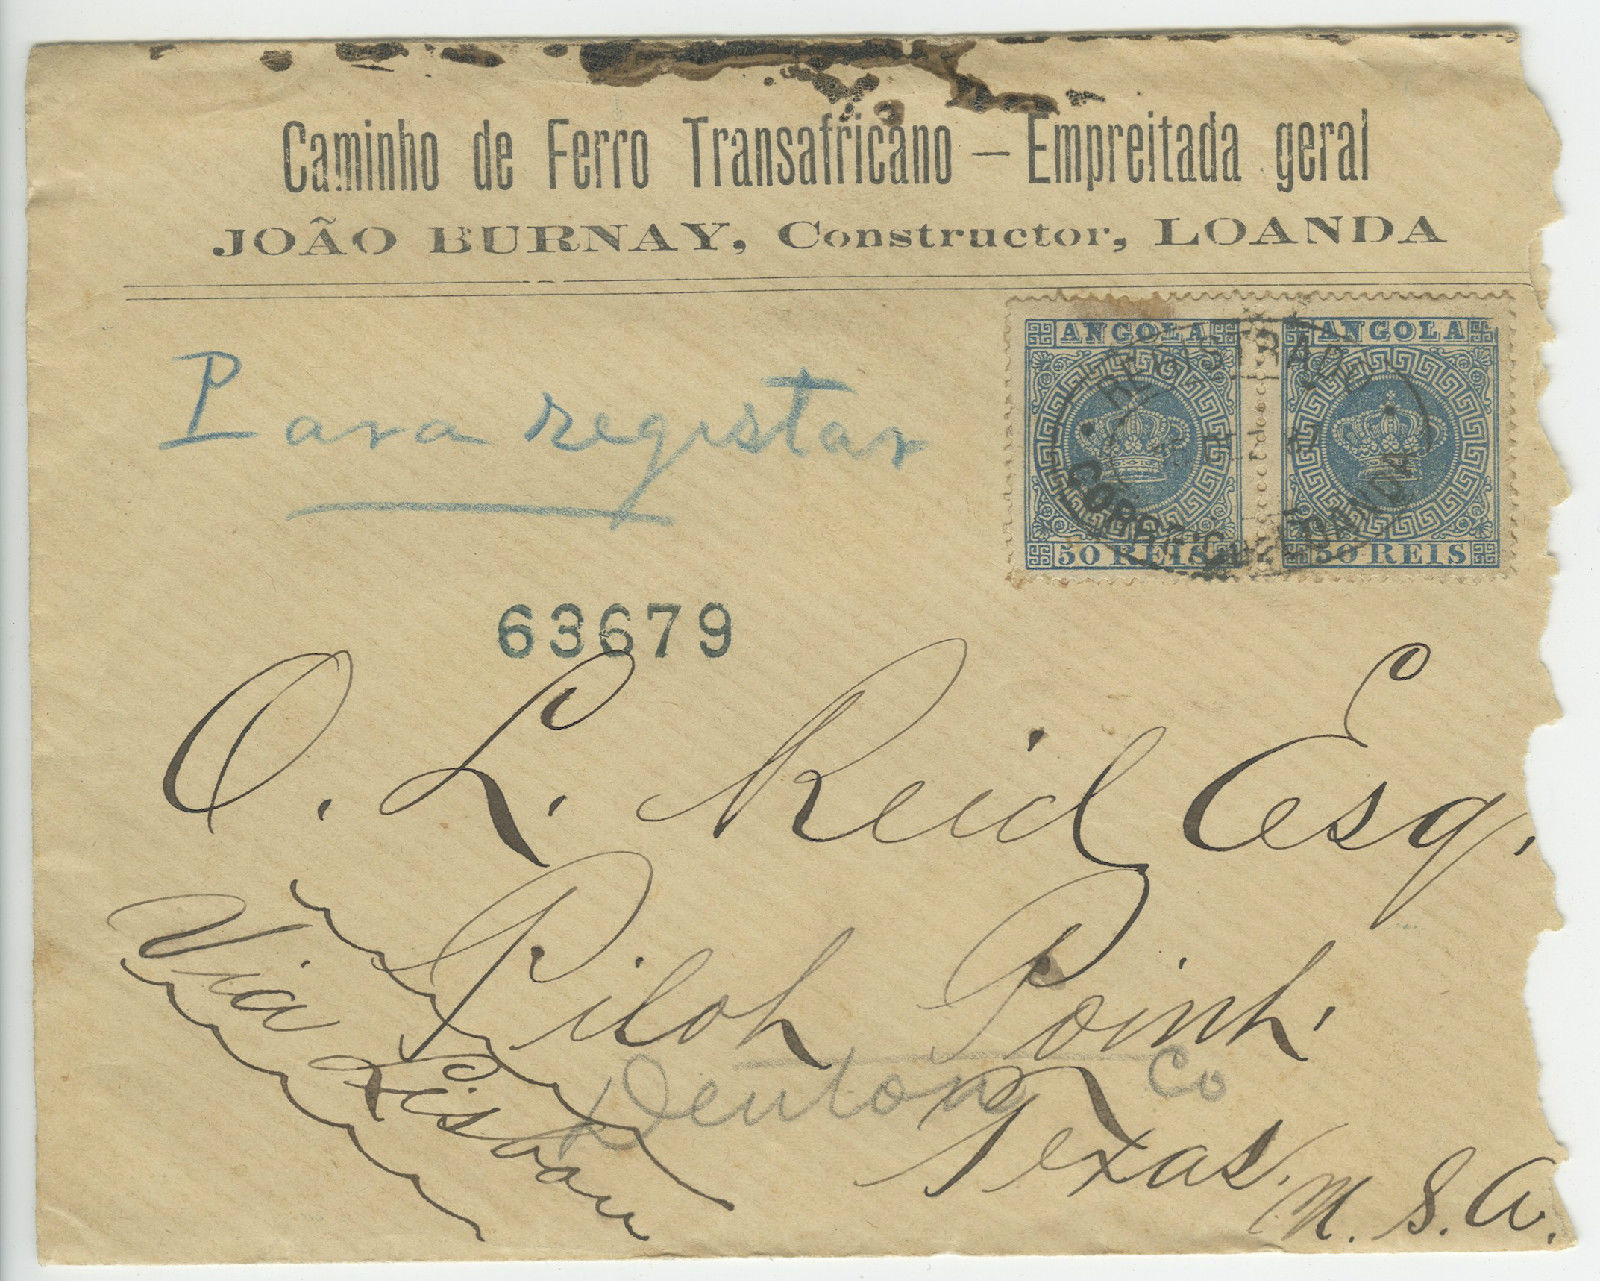 Caminho de Ferro Transafricano — Empreitada geral
JOÃO BURNAY, Constructor, LOANDA
ANGOLA
50 REIS
ANGOLA
50 REIS
LOANDA
Para registar
63679
O. L. Reid Esq.
Pilot Point.
Denton Co
Texas.
U. S. A.
Via Lisbon